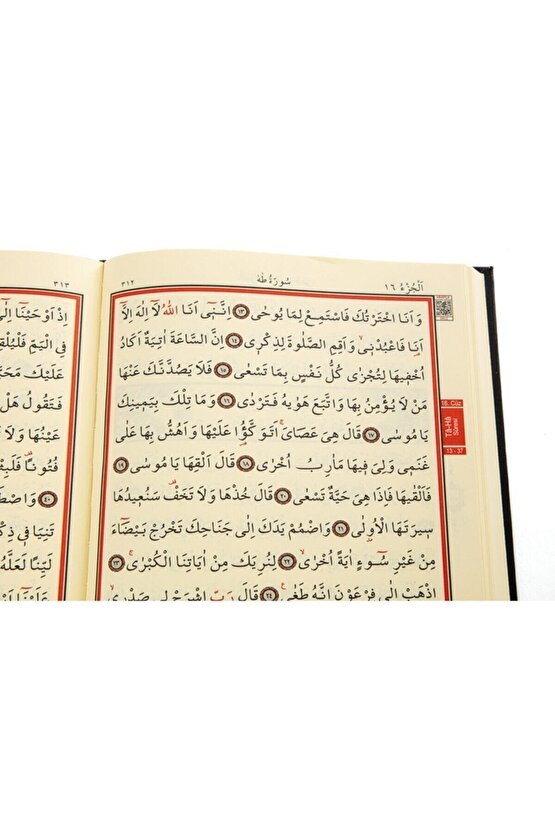 اَلْجُزْءُ ١٦
سُورَةُ طٰهٰ
٣١٢
وَاَنَا اخْتَرْتُكَ فَاسْتَمِعْ لِمَا يُوحٰى ﴿١٣﴾ اِنَّنٖٓي اَنَا اللّٰهُ لَٓا اِلٰهَ اِلَّٓا
اَنَا فَاعْبُدْنٖيۙ وَاَقِمِ الصَّلٰوةَ لِذِكْرٖي ﴿١٤﴾ اِنَّ السَّاعَةَ اٰتِيَةٌ اَكَادُ
اُخْفٖيهَا لِتُجْزٰى كُلُّ نَفْسٍ بِمَا تَسْعٰى ﴿١٥﴾ فَلَا يَصُدَّنَّكَ عَنْهَا
مَنْ لَا يُؤْمِنُ بِهَا وَاتَّبَعَ هَوٰيهُ فَتَرْدٰى ﴿١٦﴾ وَمَا تِلْكَ بِيَمٖينِكَ
يَا مُوسٰى ﴿١٧﴾ قَالَ هِيَ عَصَايَۚ اَتَوَكَّؤُ۬ا عَلَيْهَا وَاَهُشُّ بِهَا عَلٰى
غَنَمٖي وَلِيَ فٖيهَا مَاٰرِبُ اُخْرٰى ﴿١٨﴾ قَالَ اَلْقِهَا يَا مُوسٰى ﴿١٩﴾
فَاَلْقٰيهَا فَاِذَا هِيَ حَيَّةٌ تَسْعٰى ﴿٢٠﴾ قَالَ خُذْهَا وَلَا تَخَفْ۠ سَنُعٖيدُهَا
سٖيرَتَهَا الْاُو۫لٰى ﴿٢١﴾ وَاضْمُمْ يَدَكَ اِلٰى جَنَاحِكَ تَخْرُجْ بَيْضَٓاءَ
مِنْ غَيْرِ سُٓوءٍ اٰيَةً اُخْرٰىۙ ﴿٢٢﴾ لِنُرِيَكَ مِنْ اٰيَاتِنَا الْكُبْرٰىۚ ﴿٢٣﴾
اِذْهَبْ اِلٰى فِرْعَوْنَ اِنَّهُ طَغٰى۟ ﴿٢٤﴾ قَالَ رَبِّ اشْرَحْ لٖي صَدْرٖيۙ
16. Cüz
Tâ-Hâ
Sûresi
13 - 37
٣١٣
اِذْ اَوْحَيْنَٓا اِلٰٓى
فِي الْيَمِّ فَلْيُلْقِ
عَلَيْكَ مَحَبَّ
فَتَقُولُ هَلْ
عَيْنُهَا وَلَا
فُتُونًا۠ فَلَبِثْ
﴿٤٠﴾ وَاصْطَ
تَنِيَا فٖي ذِكْ
لَيِّنًا لَعَلَّهُ
عَلَيْنَٓا اَوْ اَنْ